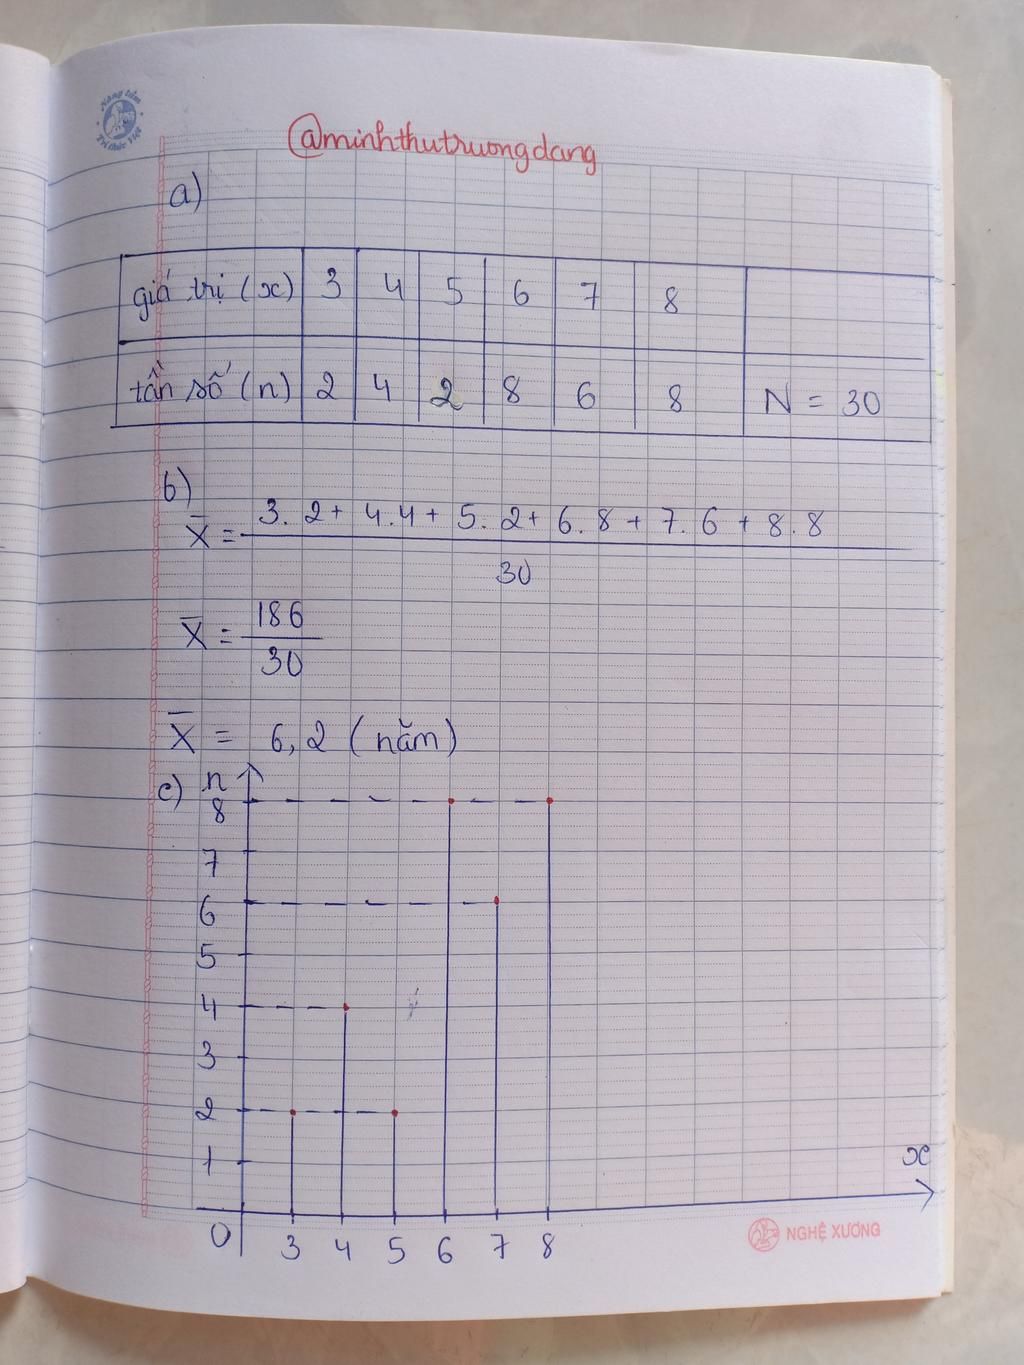 Nâng tầm
Tri thức Việt
@minhthutruongdang
a)
giá trị (x) 3 4 5 6 7 8
tần số (n) 2 4 2 8 6 8 N = 30
b)
X̄ = 3. 2+ 4.4 + 5. 2+ 6. 8 + 7. 6 + 8. 8
30
X̄ = 186
30
X̄ = 6,2 (năm)
c) n
8
7
6
5
4
3
2
1
x
0 3 4 5 6 7 8
NGHỆ XƯƠNG